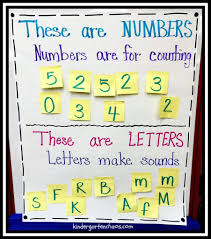 These are NUMBERS
Numbers are for counting
5 2 5 2 3
0 3 4 2
These are LETTERS
Letters make sounds
S F R B m m
K A f M
kindergartenchaos.com